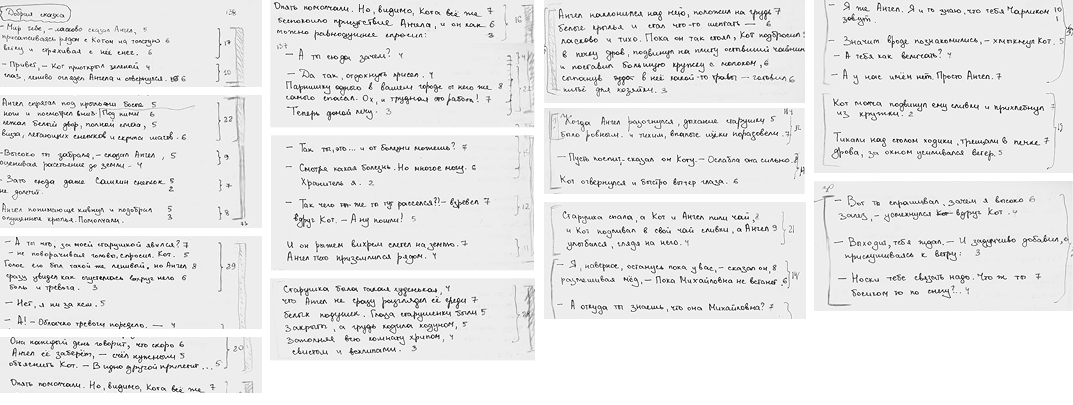 Добрая сказка
138
- Мир тебе, - ласково сказал Ангел, 5
присаживаясь рядом с Котом на толстую 6
ветку и стряхивая с неё снег. 6
17
- Привет, - Кот приоткрыл зелёный 4
глаз, лениво оглядел Ангела и отвернулся. 6
10
Ангел спрятал под крыльями босые 5
ноги и посмотрел вниз. Под ними 6
лежал белый двор, полный глаз, 5
визга, летающих снежков и скрипа шагов. 6
22
- Высоко ты забрался, - сказал Ангел, 5
оценивая расстояние до земли. - 4
9
- Зато сюда даже Сашкин снежок 5
не долетит. 2
7
Ангел понимающе кивнул и подобрал 5
опущенные крылья. Помолчали. 3
8
- А ты что, за моей старушкой явился? 7
- не поворачивая головы, спросил Кот. 5
Голос его был такой же ленивый, но Ангел 8
сразу увидел как сгустилась вокруг него 6
боль и тревога. 3
29
- Нет, я ни за кем. 5
- А! - Облачко тревоги поредело. - 4
Она каждый день говорит, что скоро 6
Ангел её заберёт, - счёл нужным 5
объяснить Кот. - Видно другой прилетит... 5
20
Опять помолчали. Но, видимо, Кота всё же 7
Опять помолчали. Но, видимо, Кота всё же 7
беспокоило присутствие Ангела, и он как 6
можно равнодушнее спросил: 3
16
- А ты сюда зачем? 4
- Да так, отдохнуть присел. 4
Парнишку одного в вашем городе от него же 8
самого спасал. Ох, и трудная это работа! 7
Теперь домой лечу. 3
- Так ты, это... и от болезни можешь? 7
- Смотря какая болезнь. Но многое могу. 6
Хранитель я. 2
- Так чего ты же ты тут расселся?! - взревел 7
вдруг Кот. - А ну пошли! 5
12
И он рыжим вихрем слетел на землю. 7
Ангел тихо приземлился рядом. 4
11
Старушка была такая худенькая, 4
что Ангел не сразу разглядел её среди 7
белых подушек. Глаза старушенки были 5
закрыты, а грудь ходила ходуном, 5
заполняя всю комнату хрипом, 4
свистом и всхлипами. 3
Ангел наклонился над нею, положил на грудь 7
белые крылья и стал что-то шептать - 6
ласково и тихо. Пока он так стоял, Кот подбросил
в печку дров, подвинул на плиту остывший чайник
и поставил большую кружку с молоком, 6
сыпанув туда в неё какой-то травы - готовил
питьё для хозяйки. 3
Когда Ангел разогнулся, дыхание старушки 5
было ровным и тихим, впалые щёки порозовели. 7
- Пусть поспит - сказал он Коту. - Ослабла она сильно. 8
Кот отвернулся и быстро вытер глаза. 6
Старушка спала, а Кот и Ангел пили чай, 8
и Кот подливал в свой чай сливки, а Ангел 9
улыбался, глядя на него. 4
21
- Я, наверное, останусь пока у вас, - сказал он, 8
размешивая мёд, - Пока Михайловна не встанет 6
14
- А откуда ты знаешь, что она Михайловна? 7
- Я же Ангел. Я и то знаю, что тебя Чариком 10
зовут. 1
- Значит вроде познакомились, - хмыкнул Кот. 5
А тебя как величать? 4
- А у нас имён нет. Просто Ангел. 7
Кот молча подвинул ему сливки и прихлебнул 7
из кружки. 2
Тикали над столом ходики, трещали в печке 7
дрова, за окном усиливался ветер. 5
- Вот ты спрашивал, зачем я высоко 6
залез, - усмехнулся вдруг Кот. 4
- Выходит, тебя ждал. - И задумчиво добавил, 6
прислушиваясь к ветру: 3
- Носки тебе связать надо. Что ж ты 7
босиком то по снегу?.. 4